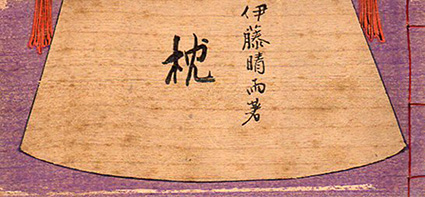 伊藤晴雨著
枕